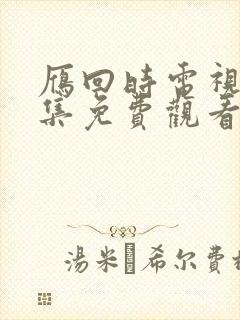 雁回時電視
集免費觀看
湯米�希尔費格